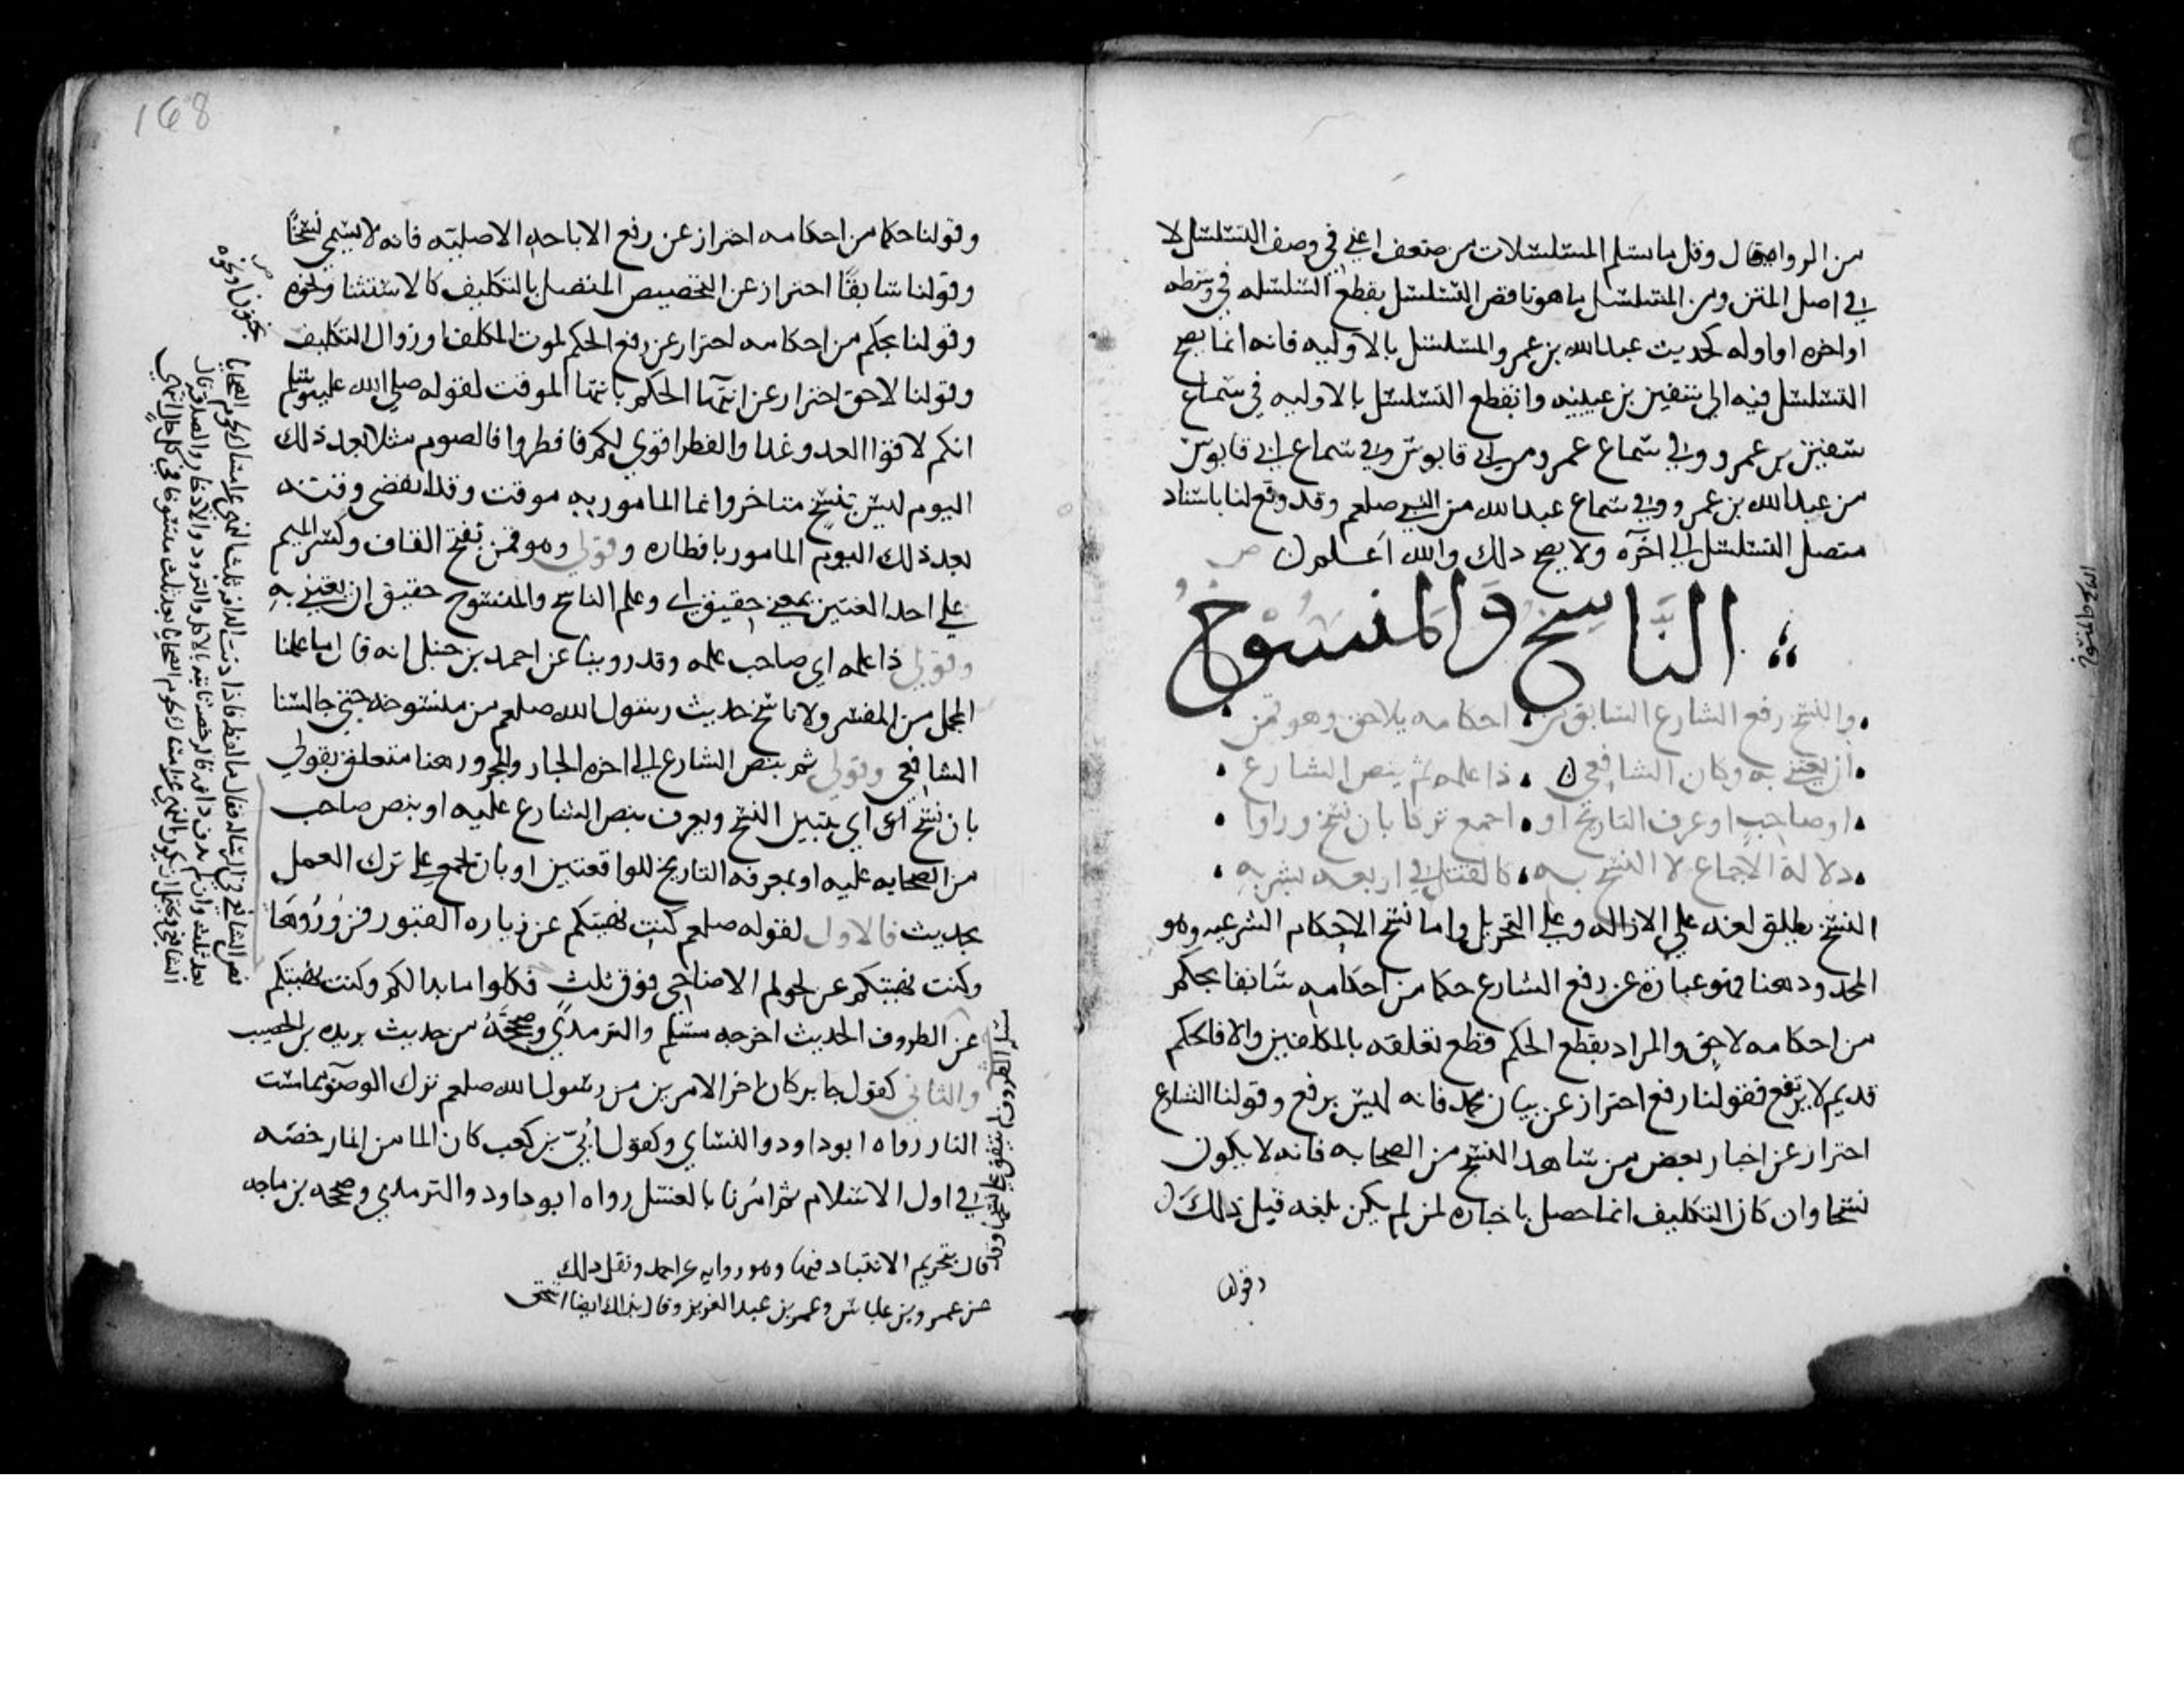 من الرواه قال وقل ما يسلم المسلسلات من ضعف اعني في وصف التسلسل لا
في اصل المتن ومن المسلسل ما هو ناقص التسلسل بقطع السلسله في وسطه
او اخره او اوله كحديث عبد الله بن عمرو المسلسل بالاوليه فانه انما يصح
التسلسل فيه الي سفين بن عيينه وانقطع التسلسل بالاوليه في سماع
سفين من عمرو وفي سماع عمرو من ابي قابوس وفي سماع ابي قابوس
من عبد الله بن عمرو وفي سماع عبد الله من النبي صلعم وقد وقع لنا باسناد
متصل التسلسل الي اخره ولا يصح ذلك والله اعلم ن ص
الناسخ والمنسوخ
والنسخ رفع الشارع السابق من . احكامه بلاحق وهو قمن
ان يعتني به وكان الشافعي ن . ذا علمه ثم بنص الشارع .
او صاحب او عرف التاريخ او . اجمع تركا بان نسخ وراوا .
دلالة الاجماع لا النسخ به . كالقتل في اربعه بشربه .
النسخ يطلق لغه علي الازاله وعلي التحويل واما نسخ الاحكام الشرعيه وهو
المحدود هنا فهو عبارة عن رفع الشارع حكما من احكامه سابقا بحكم
من احكامه لاحق والمراد بقطع الحكم قطع تعلقه بالمكلفين والا فالحكم
قديم لا يرتفع فقولنا رفع احتراز عن بيان مجمل فانه ليس برفع وقولنا الشارع
احتراز عن اخبار بعض من شاهد النسخ من الصحابه فانه لا يكون
نسخا وان كان التكليف انما حصل باخباره لمن لم يكن بلغه قبل ذلك ن
وقولنا
168
وقولنا حكما من احكامه احتراز عن رفع الاباحه الاصليه فانه لا يسمي نسخا
وقولنا سابقا احتراز عن التخصيص المتصل بالتكليف كالاستثنا ونحوه
وقولنا بحكم من احكامه احتراز عن رفع الحكم لموت المكلف او زوال التكليف
وقولنا لاحق احتراز عن انتها الحكم بانتها الموقت لقوله صلي الله عليه وسلم
انكم لاقوا العدو غدا والفطر اقوي لكم فافطروا فالصوم مثلا بعد ذلك
اليوم ليس بنسخ متاخر وانما المامور به موقت وقد انقضي وقته
بعد ذلك اليوم المامور بافطاره وقولي وهو قمن بفتح القاف وكسر الميم
علي احد اللغتين بمعني حقيق اي وعلم الناسخ والمنسوخ حقيق ان يعتني به
وقولي ذا علمه اي صاحب علمه وقد روينا عن احمد بن حنبل انه قال ما علمنا
المجمل من المفسر ولا ناسخ حديث رسول الله صلعم من منسوخه حتي جالسنا
الشافعي وقولي ثم بنص الشارع الي اخره الجار والمجرور هنا متعلق بقولي
بان نسخ اي يتبين النسخ ويعرف بنص الشارع عليه او بنص صاحب
من الصحابه عليه او بمعرفه التاريخ للواقعتين او بان تجمع علي ترك العمل
بحديث فالاول لقوله صلعم كنت نهيتكم عن زياره القبور فزوروها
وكنت نهيتكم عن لحوم الاضاحي فوق ثلث فكلوا ما بدا لكم وكنت نهيتكم
عن الظروف الحديث اخرجه مسلم والترمذي وصححه من حديث بريده بن الحصيب
والثاني كقول جابر كان اخر الامرين من رسول الله صلعم ترك الوضو مما مست
النار رواه ابو داود والنساي وكقول ابي بن كعب كان الما من الما رخصه
في اول الاسلام ثم امرنا بالغسل رواه ابو داود والترمذي وصححه بن ماجه
قال بتحريم الانتباذ فيها وهو روايه عن احمد ونقل ذلك
عن عمر وبن عباس وعمر بن عبد العزيز وقال بذلك ايضا اسحق